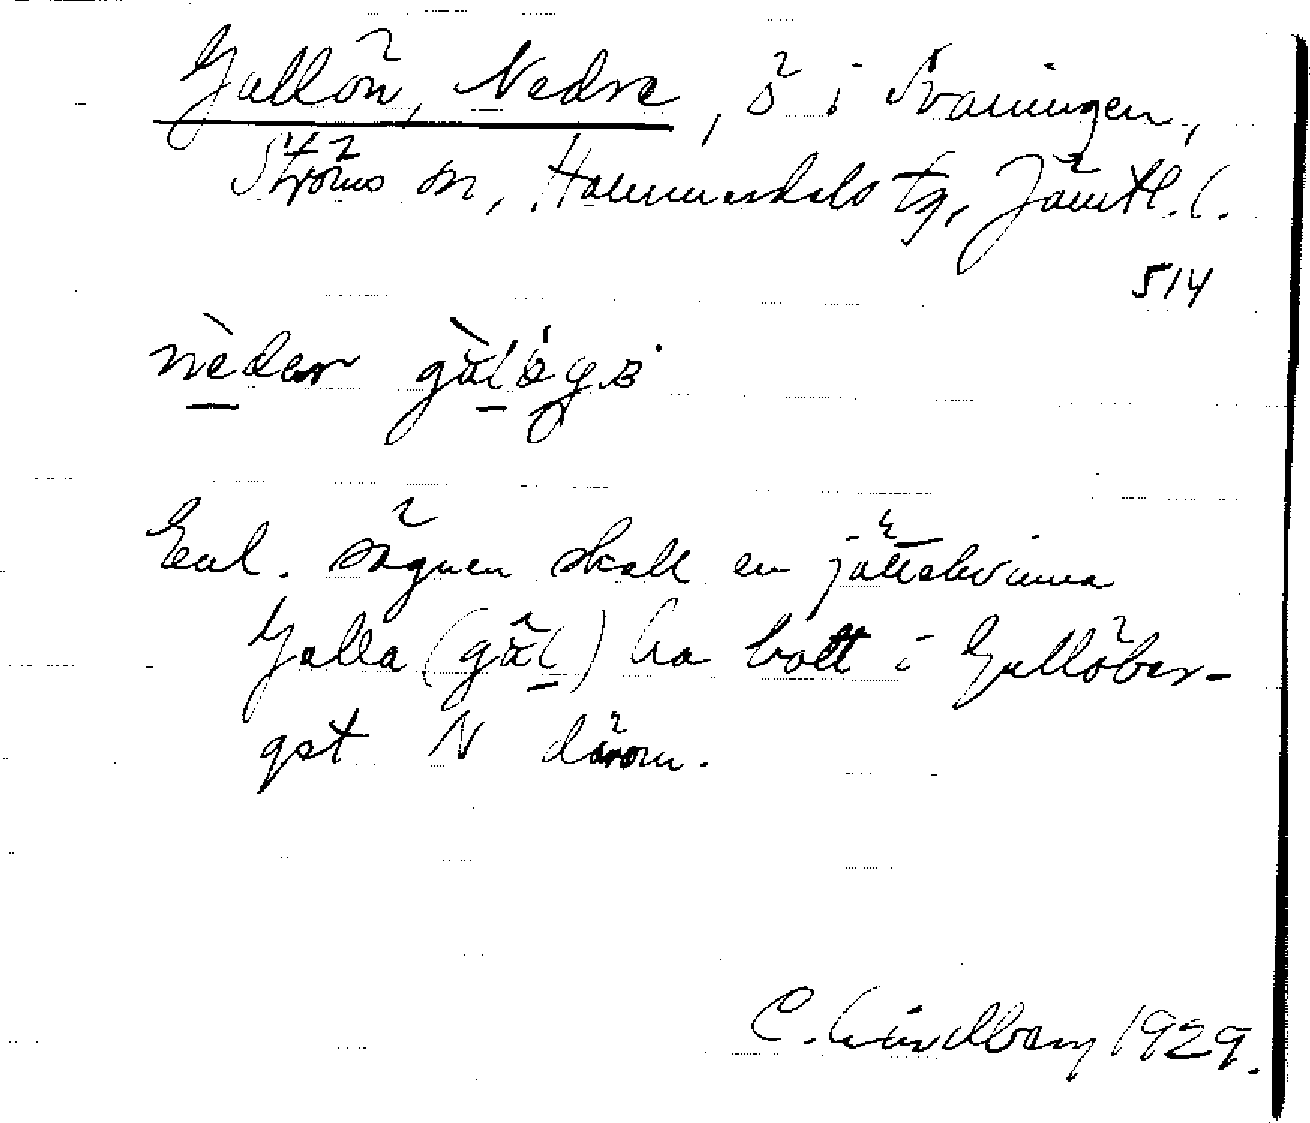 Gallön, Nedre, ö i Svaningen,
Ströms sn, Hammerdals tg, Jämtl. l.
514
Enl. sägnen skall en jättekvinna
Galla (gàl) ha bott i Gallöber-
get N därom.
C. Lindberg 1929.